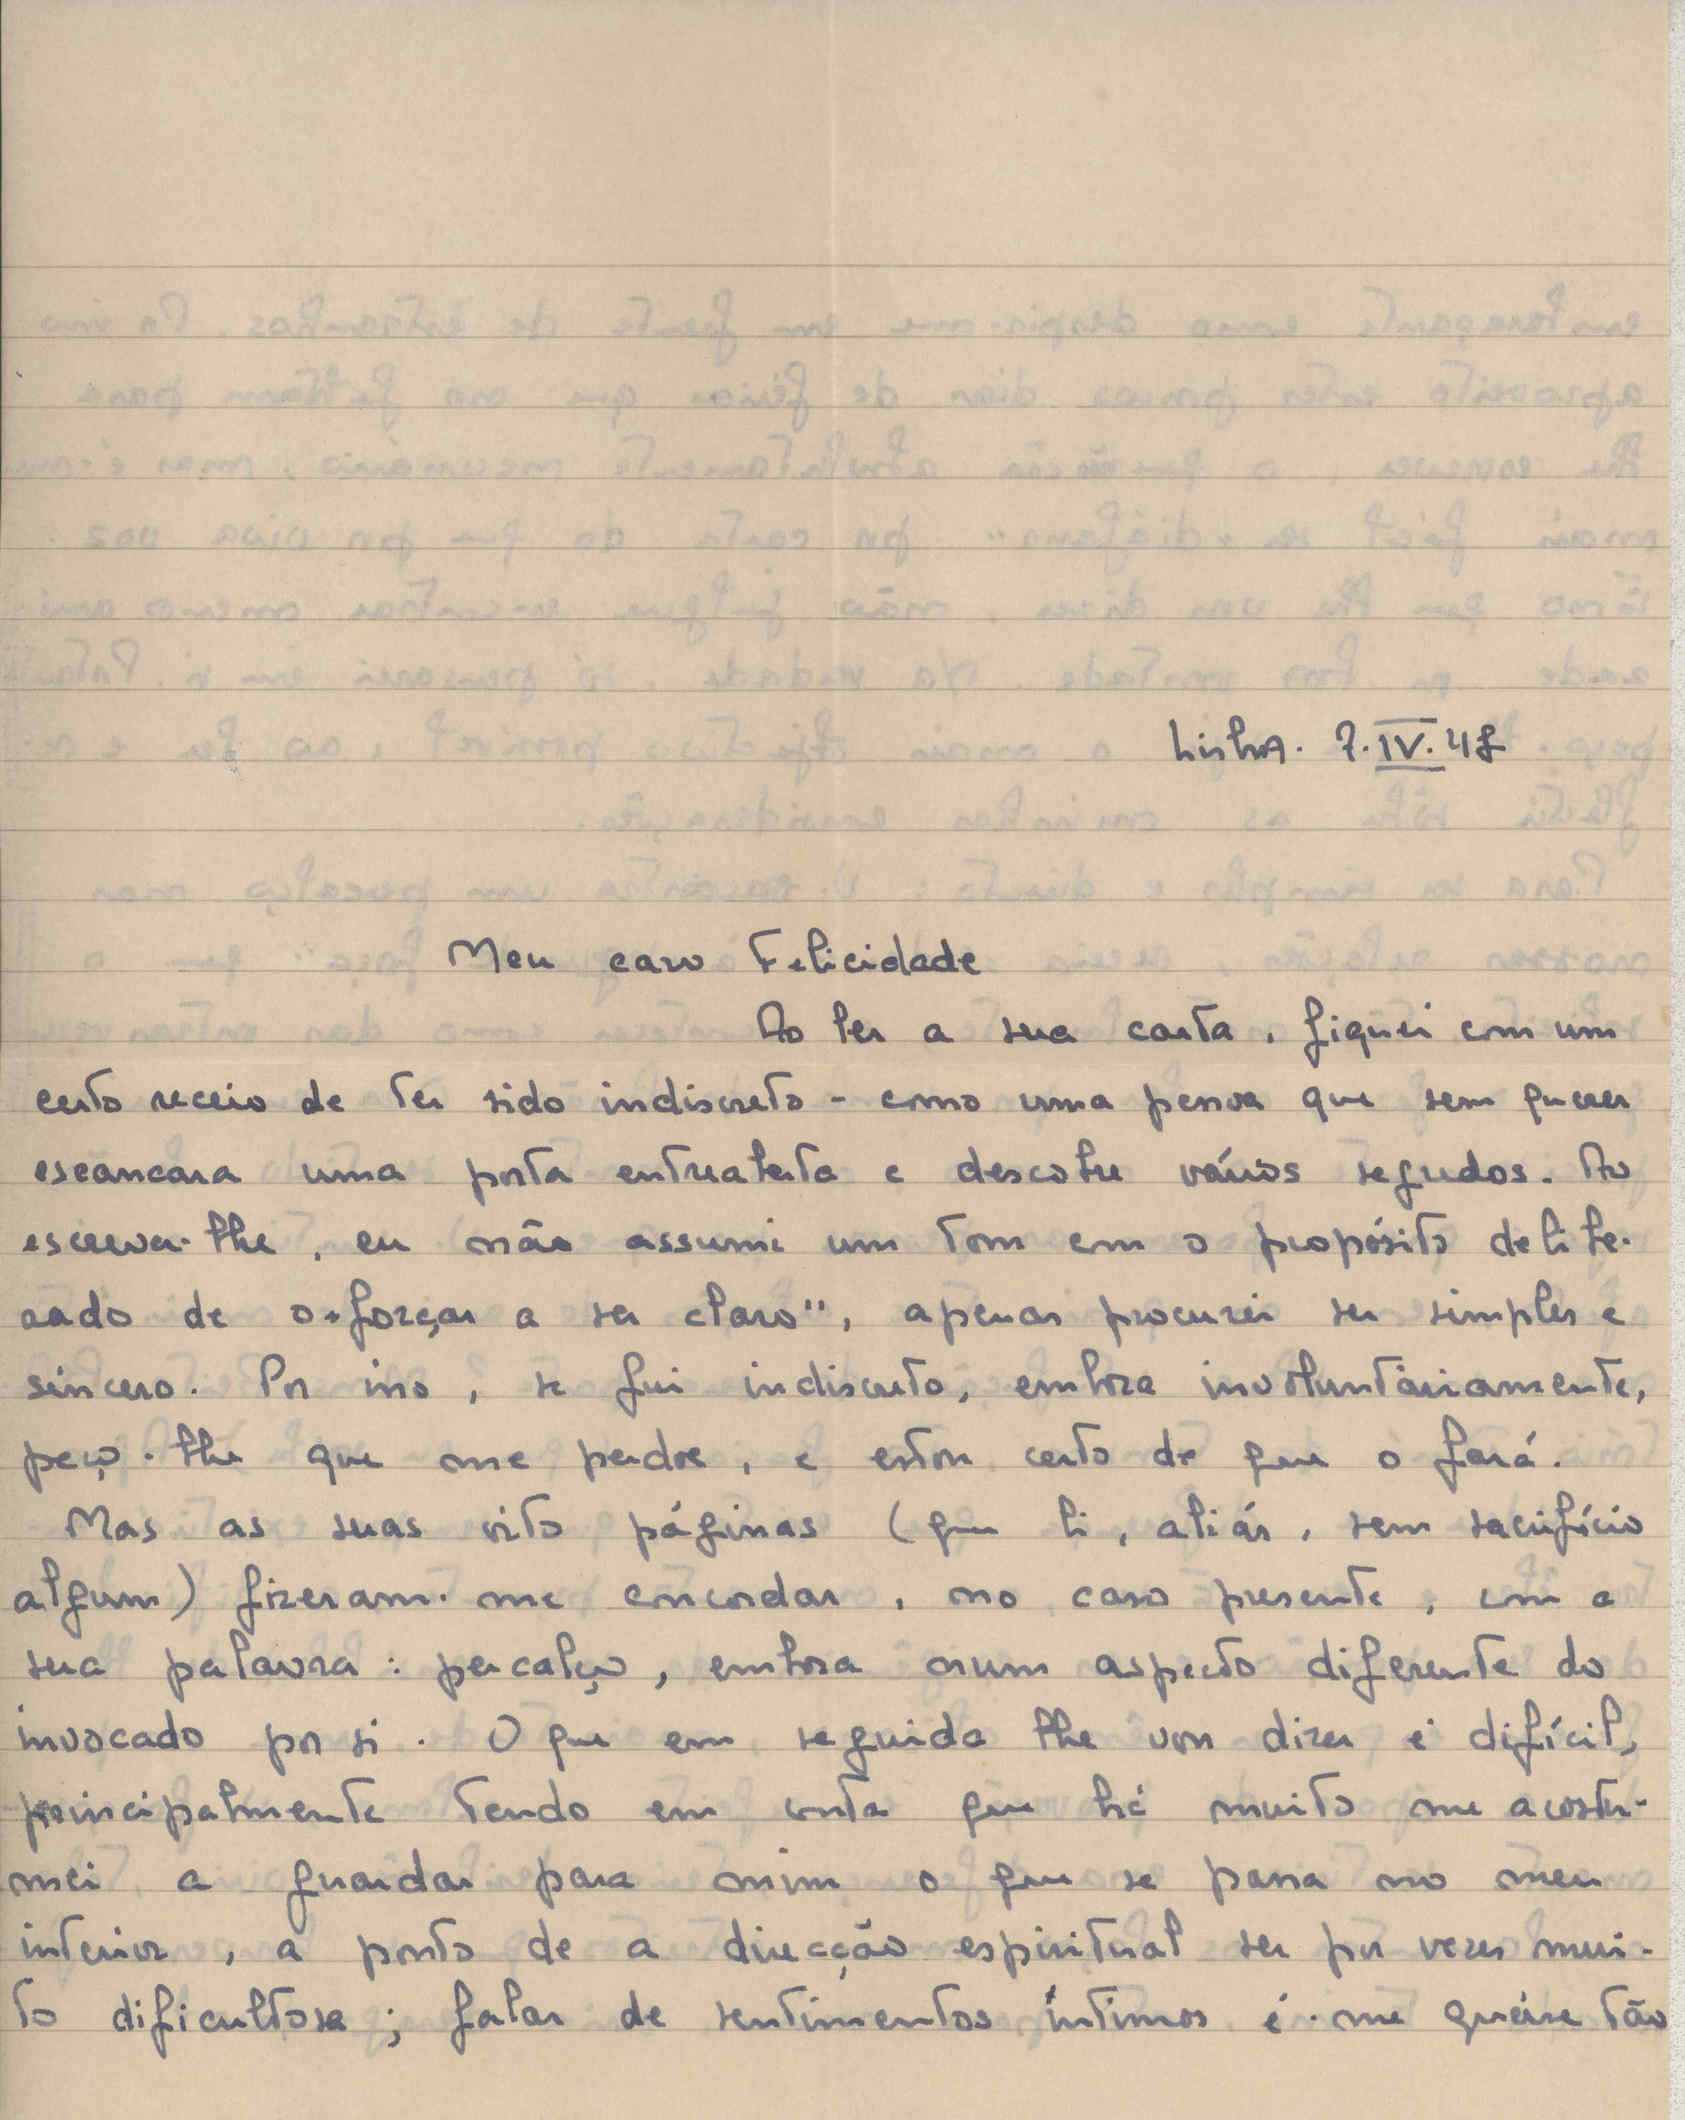 Lisboa. 7.IV.48
Meu caro Felicidade
Ao ler a sua carta, fiquei com um
certo receio de ter sido indiscreto - como uma pessoa que sem querer
escancara uma porta entreaberta e descobre vários segredos. Ao
escrever-lhe, eu não assumi um tom com o propósito delibe-
rado de o "forçar a ser claro", apenas procurei ser simples e
sincero. Por isso, se fui indiscreto, embora involuntàriamente,
peço-lhe que me perdoe, e estou certo de que o fará.
Mas as suas oito páginas (que li, aliás, sem sacrifício
algum) fizeram-me concordar, no caso presente, com a
sua palavra: percalço, embora num aspecto diferente do
invocado por si. O que em seguida lhe vou dizer é difícil,
principalmente tendo em conta que há muito me acostu-
mei a guardar para mim o que se passa no meu
interior, a ponto de a direcção espiritual ser por vezes mui-
to dificultosa; falar de sentimentos íntimos é-me quási tão